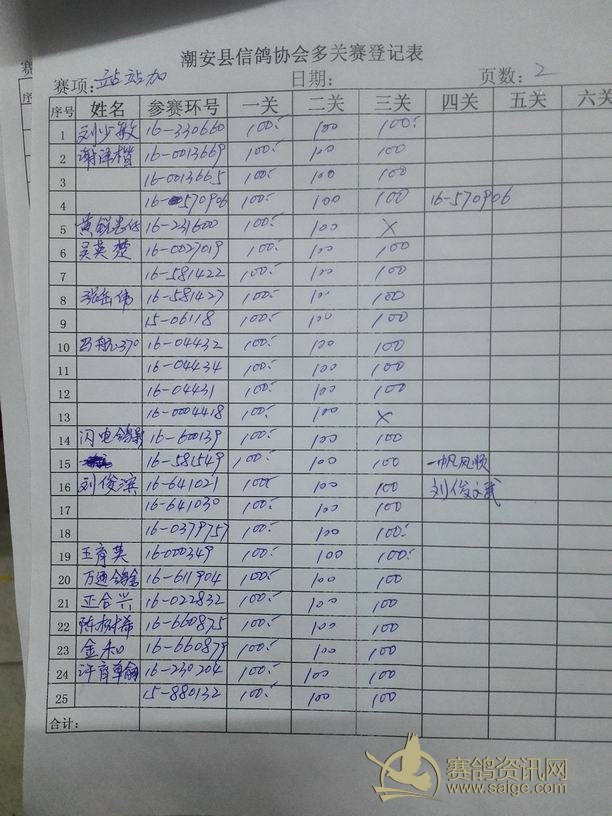 潮安县信鸽协会多关赛登记表
赛项: 站站加 日期: 页数: 2
序号 姓名 参赛环号 一关 二关 三关 四关 五关 六关
1 刘少敏 16-330660 100 100 100
2 谢泽楷 16-0013669 100 100 100
3 16-0013665 100 100 100
4 16-570906 100 100 100 16-570906
5 16-231600 100 100 ×
6 吴英楚 16-0027019 100 100 100
7 16-581422 100 100 100
8 张岳伟 16-581427 100 100 100
9 15-06118 100 100 100
10 马航370 16-04432 100 100 100
11 16-04434 100 100 100
12 16-04431 100 100 100
13 16-0004418 100 100 ×
14 闪电鸽 16-600139 100 100 100
15 16-581549 100 100 100 一帆风顺
16 刘俊滨 16-641021 100 100 100 刘俊文武
17 16-641030 100 100 100
18 16-0379757 100 100 100
19 王育英 16-000349 100 100 100
20 万通鸽舍 16-611904 100 100 100
21 正合兴 16-022832 100 100 100
22 陈 16-660875 100 100 100
23 金和 16-660879 100 100 100
24 许育草 16-230204 100 100 100
25 15-880132 100 100 100
合计:
赛鸽资讯网
www.saige.com
赛
序